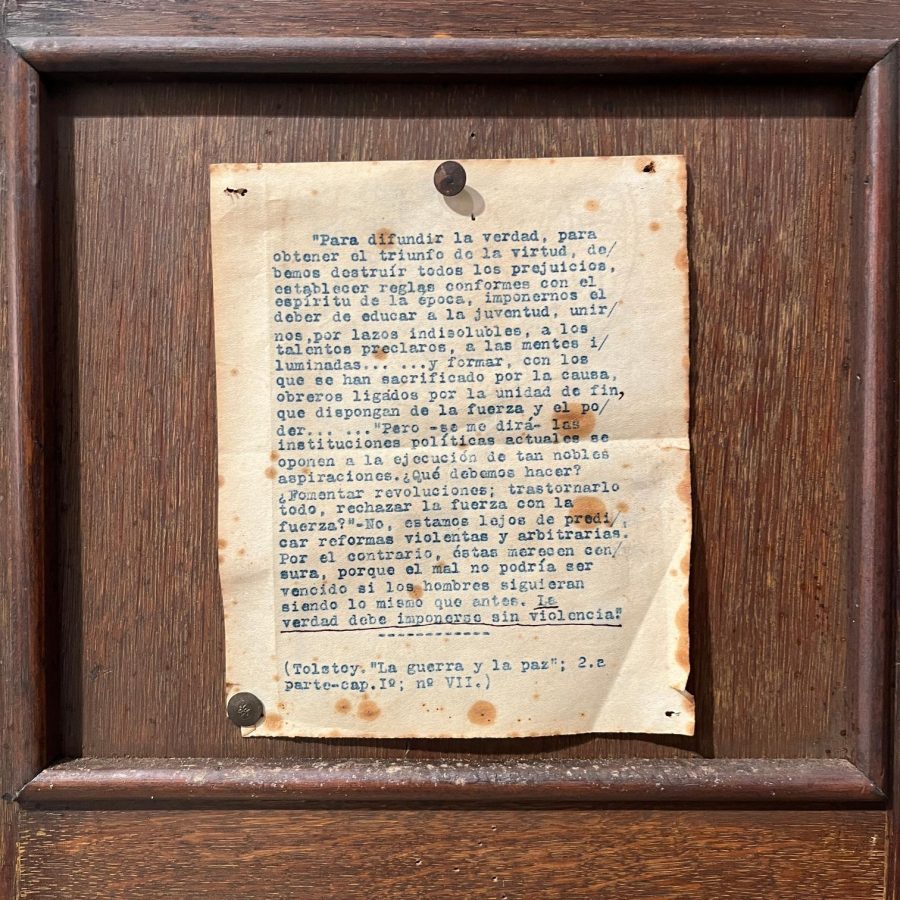 "Para difundir la verdad, para
obtener el triunfo de la virtud, de/
bemos destruír todos los prejuicios,
establecer reglas conformes con el
espíritu de la época, imponernos el
deber de educar a la juventud, unir/
nos,por lazos indisolubles, a los
talentos preclaros, a las mentes i/
luminadas... ...y formar, con los
que se han sacrificado por la causa,
obreros ligados por la unidad de fin,
que dispongan de la fuerza y el po/
der... ..."Pero -se me dirá- las
instituciones políticas actuales se
oponen a la ejecución de tan nobles
aspiraciones.¿Qué debemos hacer?
¿Fomentar revoluciones; trastornarlo
todo, rechazar la fuerza con la
fuerza?"-No, estamos lejos de predi/
car reformas violentas y arbitrarias.
Por el contrario, éstas merecen cen/
sura, porque el mal no podría ser
vencido si los hombres siguieran
siendo lo mismo que antes. La
verdad debe imponerse sin violencia".
------------
(Tolstoy."La guerra y la paz"; 2.a
parte-cap.Iº; nº VII.)